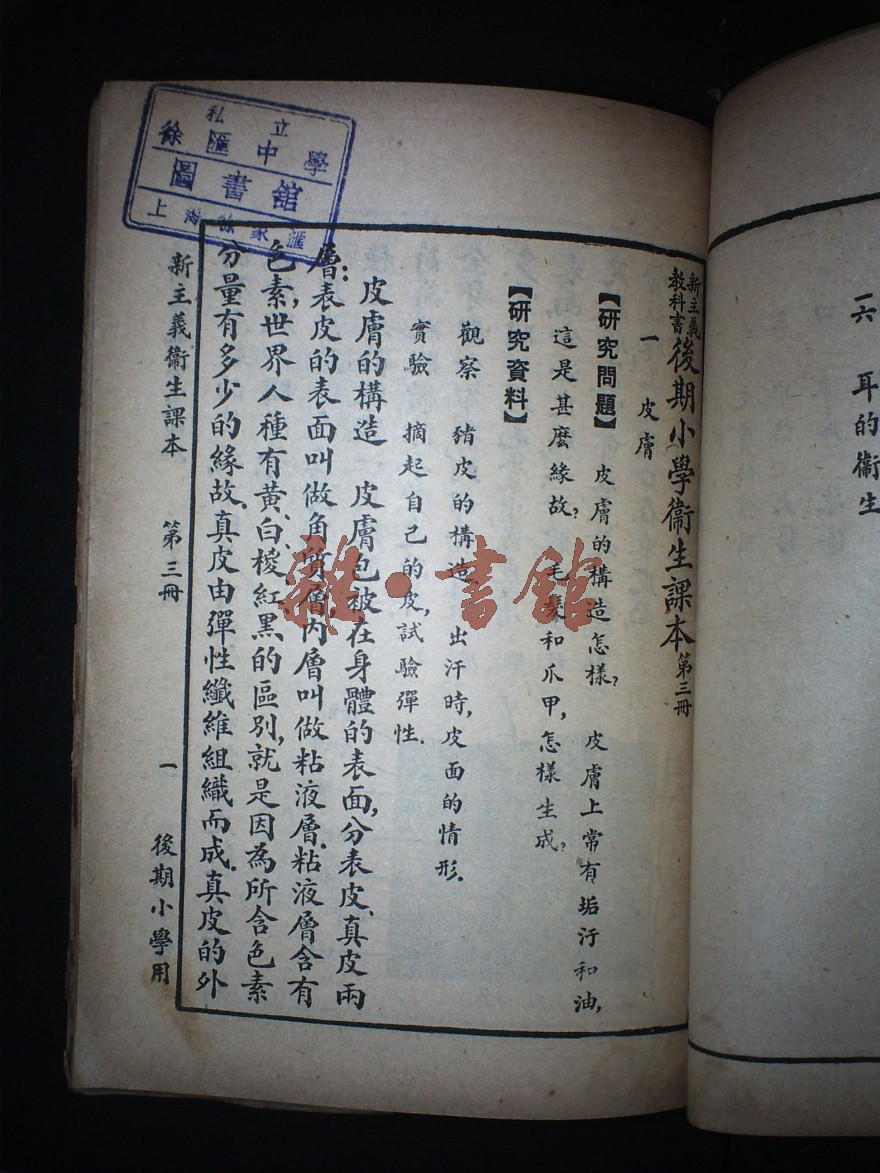 一六　耳的衞生
新主義教科書後期小學衞生課本第三冊
一　皮膚
【研究問題】　皮膚的構造怎樣？　皮膚上常有垢汙和油，
這是甚麼緣故？　毛髮和爪甲，怎樣生成？
【研究資料】
觀察　豬皮的構造　出汗時，皮面的情形．
實驗　摘起自己的皮，試驗彈性．
皮膚的構造　皮膚包被在身體的表面，分表皮、真皮兩
層：表皮的表面叫做角質層，內層叫做粘液層．粘液層含有
色素，世界人種有黃、白、椶、紅、黑的區別，就是因為所含色素
分量有多少的緣故．真皮由彈性纖維組織而成．真皮的外
新主義衞生課本　第三冊　一　後期小學用
私立
徐匯中學
圖書館
上海徐家匯
雜·書館